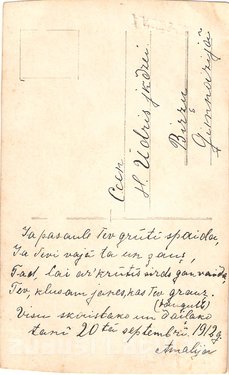 Cien.
H. Udris jkdzei
Biržu
Ģimnazijā
Ja pasaule Tev grūti spaida,
Ja Tevi vajā ta un
Tad, lai ar' krūtis sirds gan vaida,
Tev klusam jānes, kas Tevi grauž.
Visu skaistako un daiļako
tanī 20tā septembrī 1912 g.
Amalija